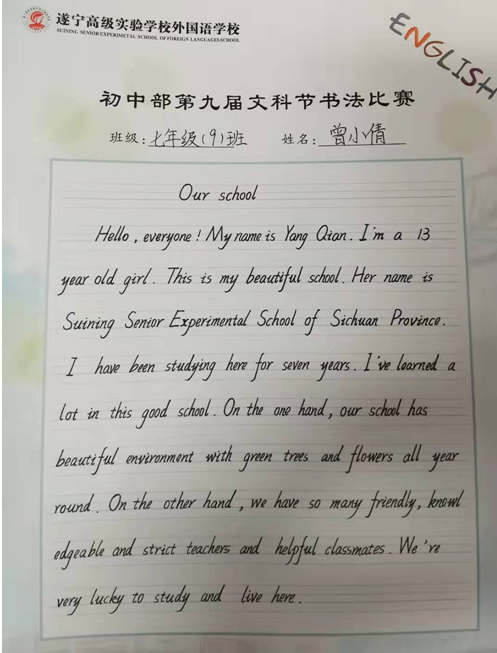 遂宁高级实验学校外国语学校
SUINING SENIOR EXPERIMETAL SCHOOL OF FOREIGN LANGUAGES SCHOOL
ENGLISH
初中部第九届文科节书法比赛
班级:七年级(9)班 姓名:曾小倩
Our school
Hello, everyone! My name is Yang Qian. I'm a 13
year old girl. This is my beautiful school. Her name is
Suining Senior Experimental School of Sichuan Province.
I have been studying here for seven years. I've learned a
lot in this good school. On the one hand, our school has
beautiful environment with green trees and flowers all year
round. On the other hand, we have so many friendly, knowl
edgeable and strict teachers and helpful classmates. We're
very lucky to study and live here.